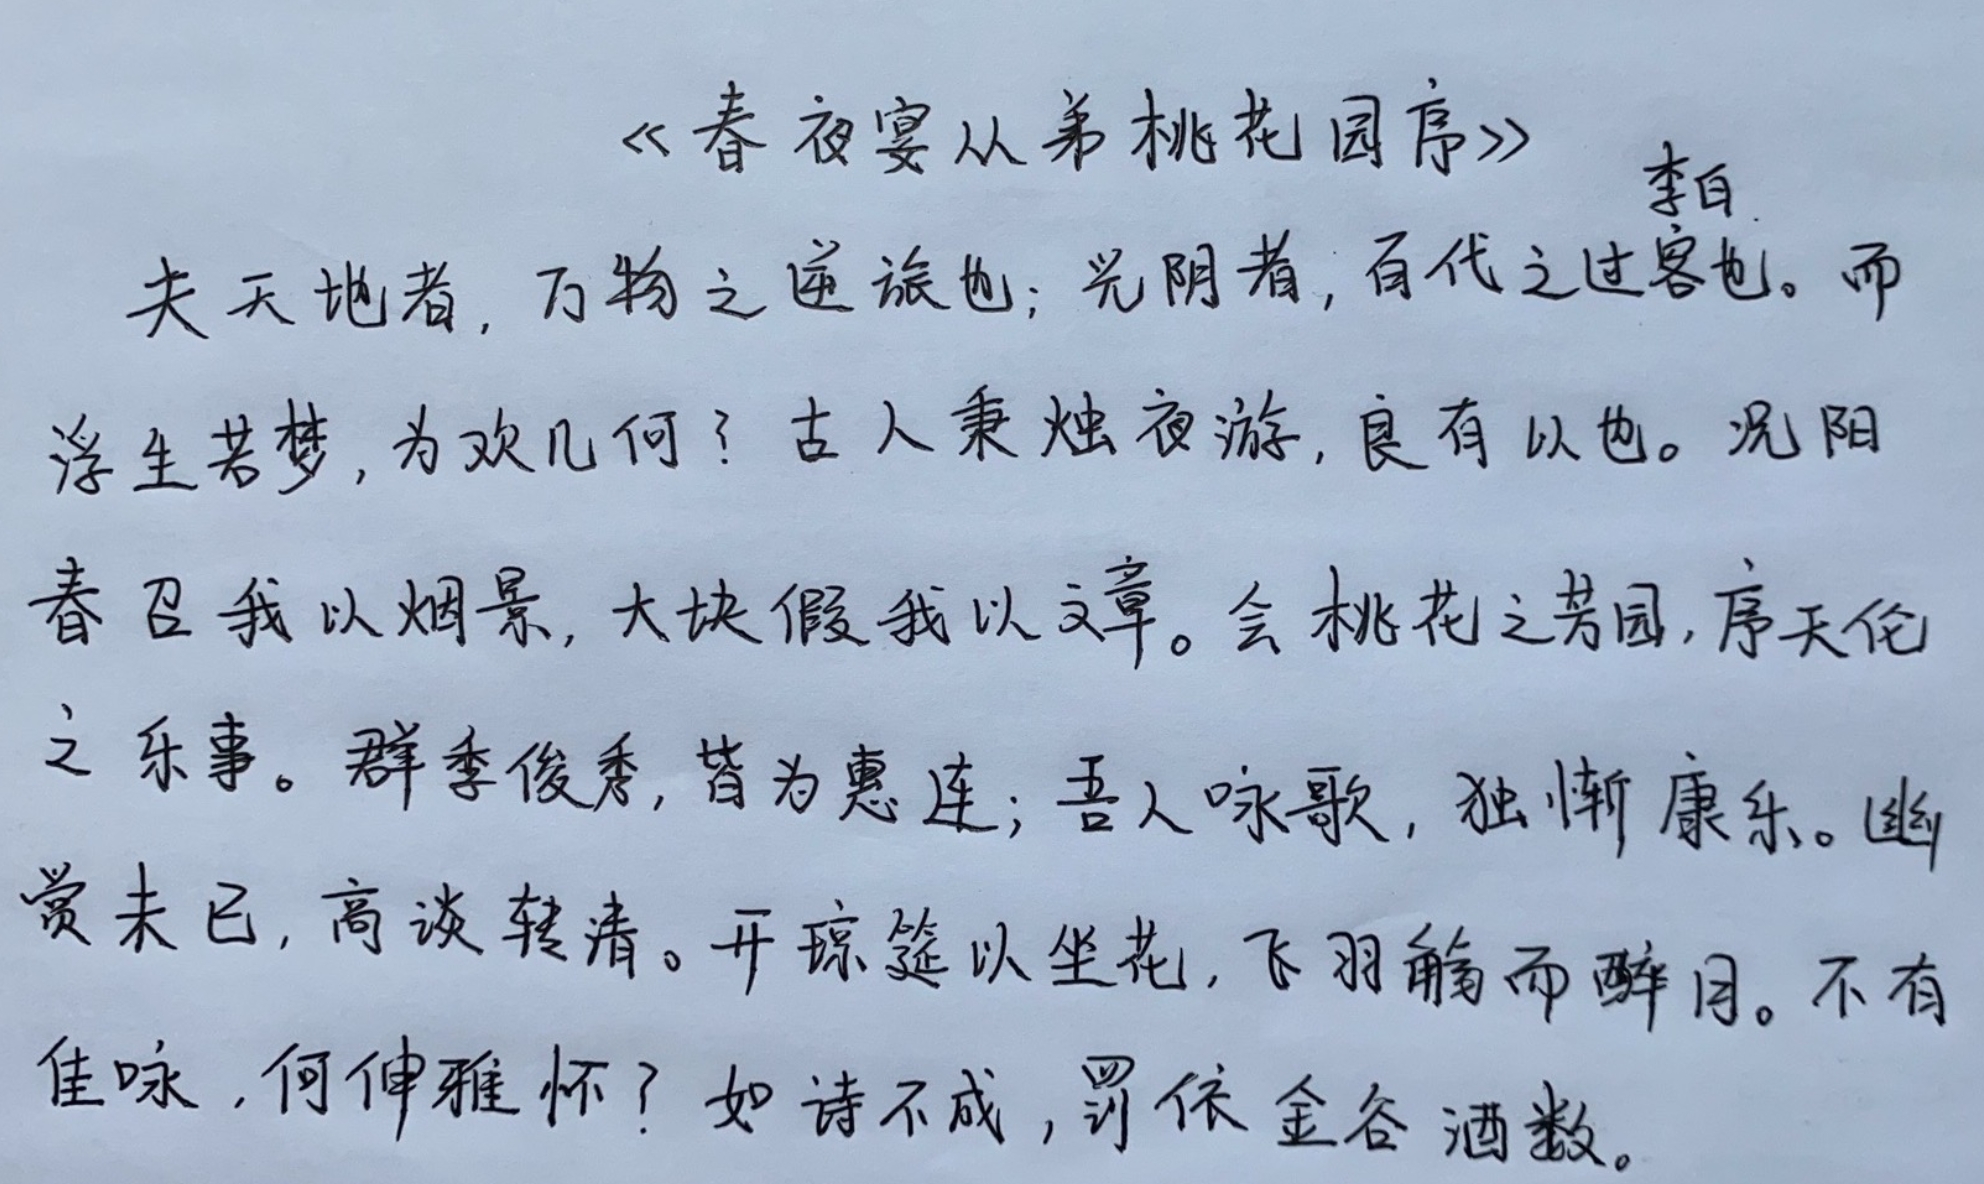 《春夜宴从弟桃花园序》
李白
夫天地者,万物之逆旅也;光阴者,百代之过客也。而
浮生若梦,为欢几何?古人秉烛夜游,良有以也。况阳
春召我以烟景,大块假我以文章。会桃花之芳园,序天伦
之乐事。群季俊秀,皆为惠连;吾人咏歌,独惭康乐。幽
赏未已,高谈转清。开琼筵以坐花,飞羽觞而醉月。不有
佳咏,何伸雅怀?如诗不成,罚依金谷酒数。